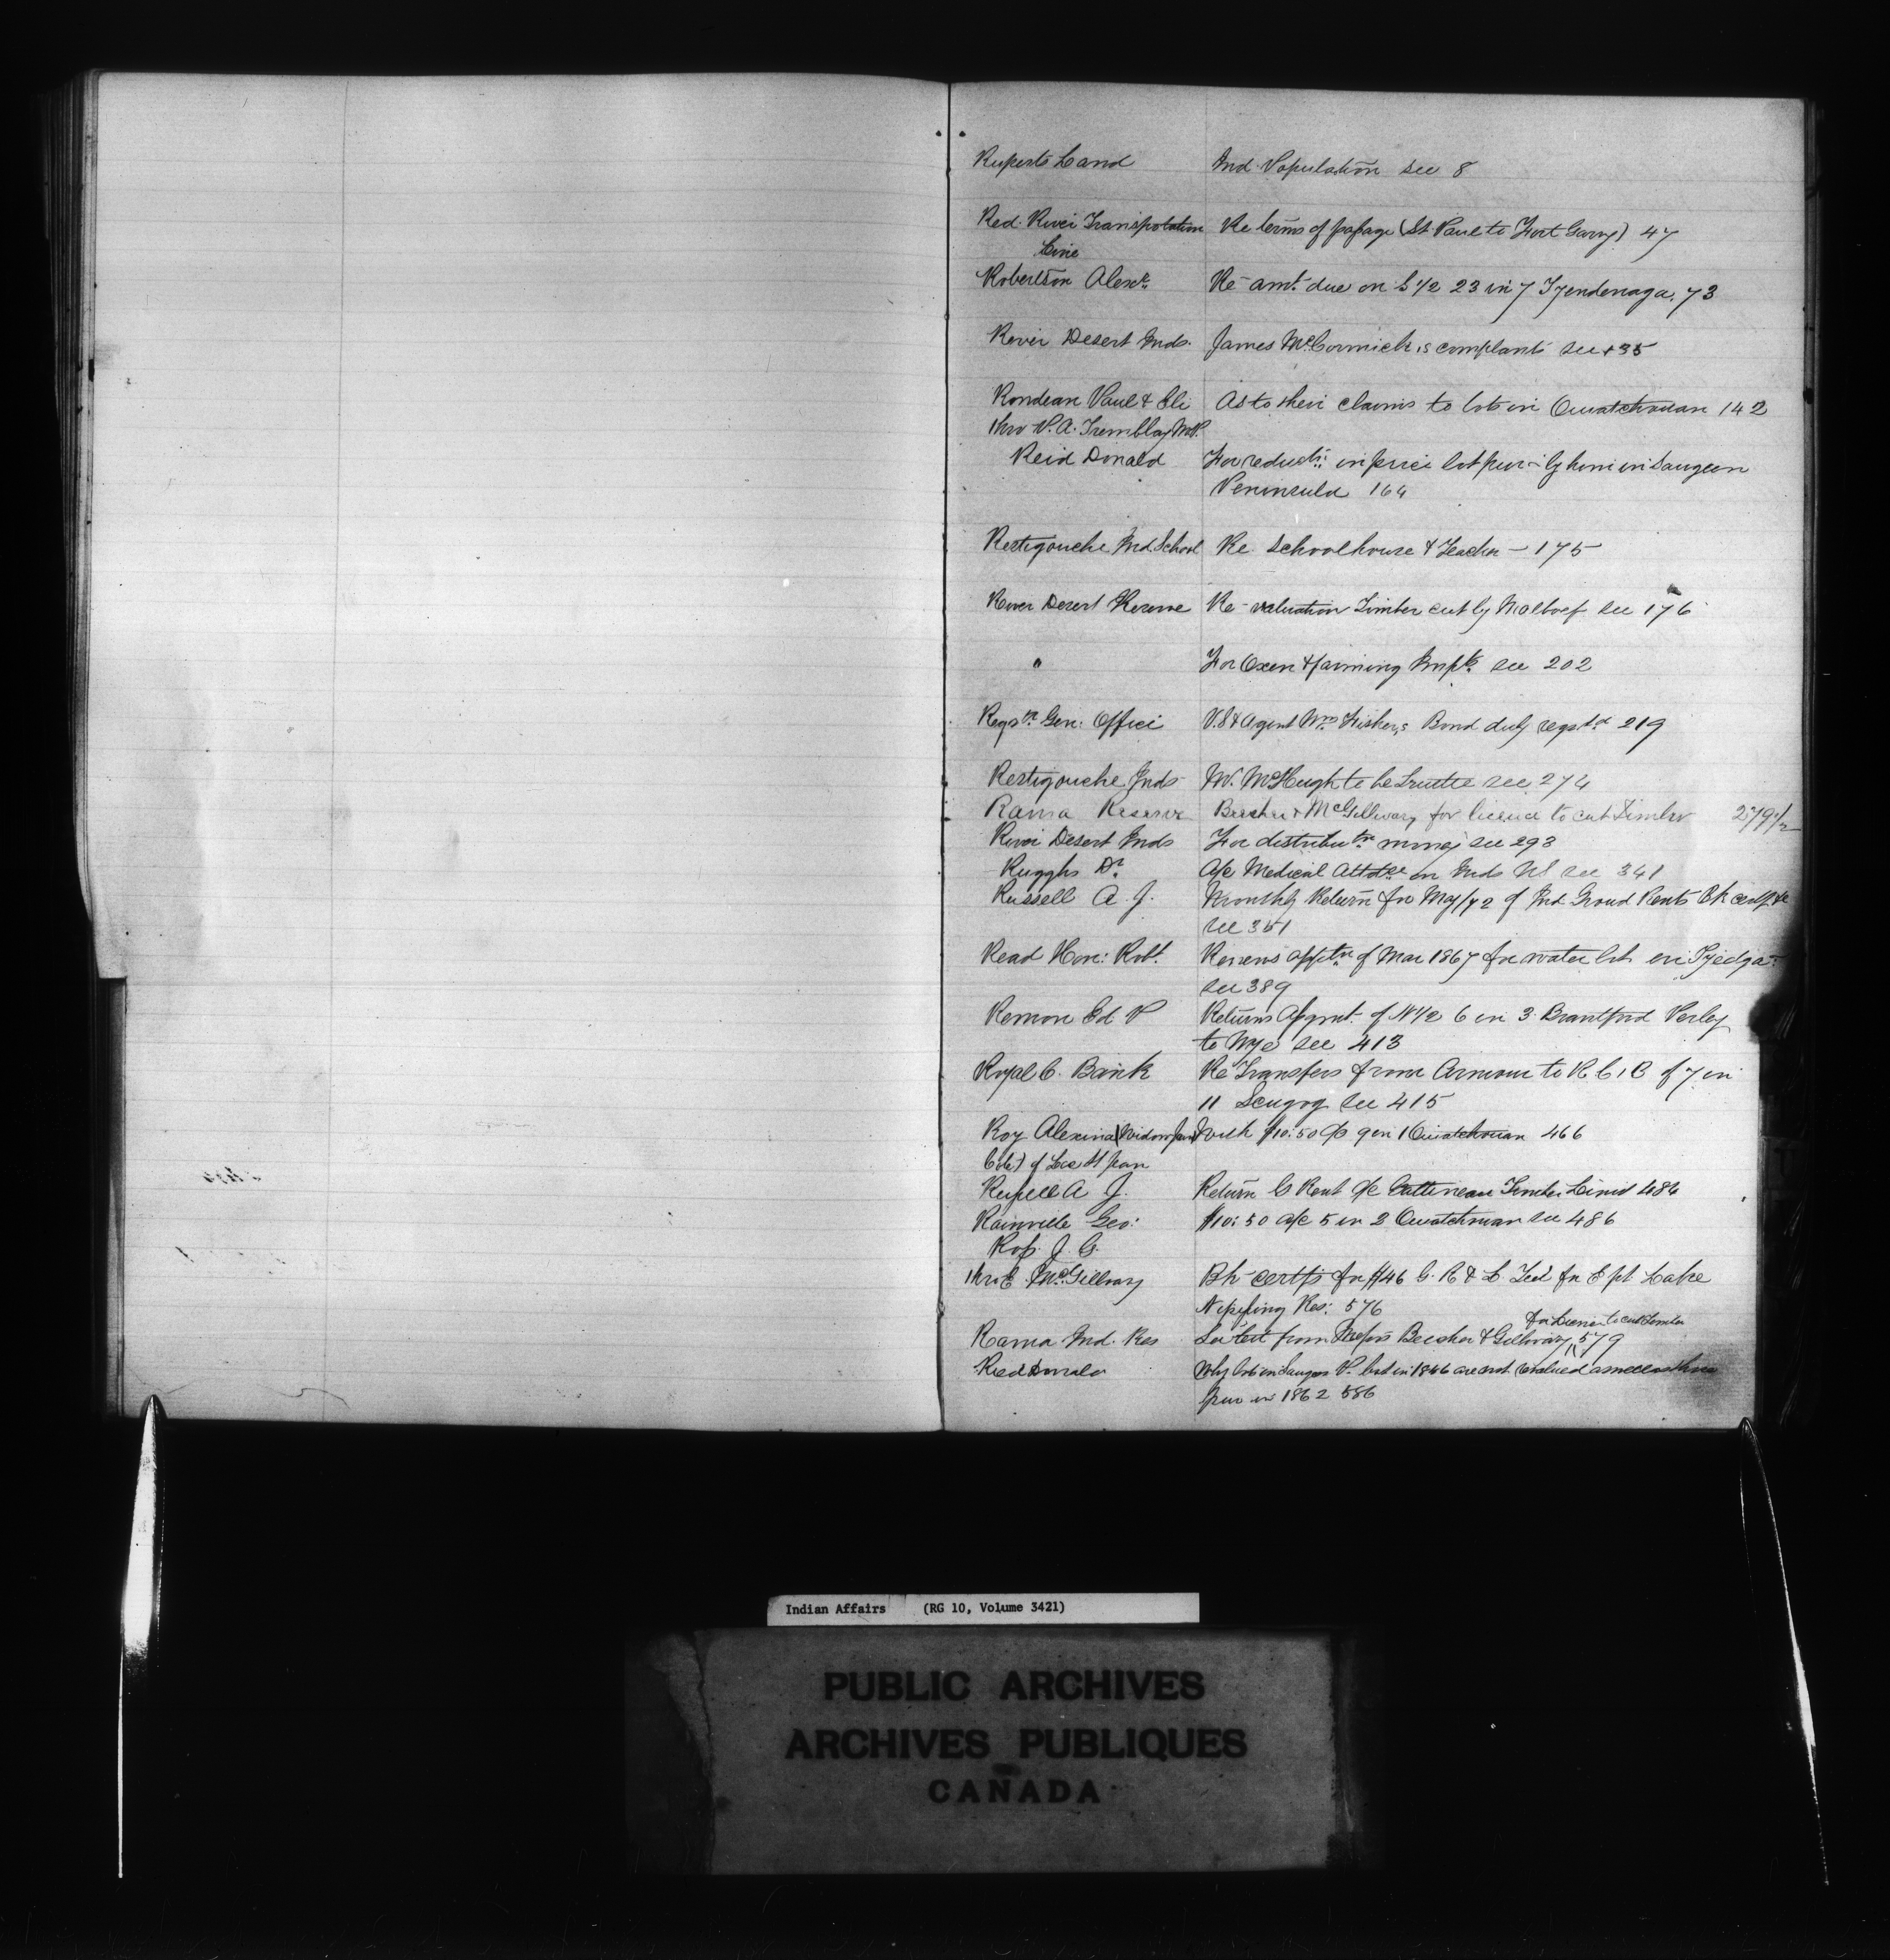 Ruperts Land Ind. Population see 8
Red River Transpotation Re terms of passage (St Paul to Fort Garry) 47
Line
Robertson Alexr. Re amt. due on S 1/2 23 in 7 Tyendenaga. 73
River Desert Inds. James McCormick,s complants see 135
Rondeau Paul & Eli As to their claims to lots in Ouiatchouan 142
thro P. A. Tremblay M.P.
Reid Donald For reductn. in price lot pur by him in Saugeen
Peninsula 164
Restigouche Ind. School Re Schoolhouse & Teacher - 175
River Desert Reserve Re valuation Timber cut by see 176
" For Oxen & farming Impts. see 202
Regsr. Gen: Office V. S & Agent Wm. Fisher,s Bond duly regstd 219
Restigouche Inds W. McHugh to be Trustee see 274
Rama Reserve Beecher & McGillivary for licence to cut timber 279 1/2
River Desert Inds For distributn money see 293
Ruggles Dr. a/c Medical Attdce on Inds NS see 341
Russell A. J. Monthly Return for May/72 of Ind. Groud Rents Bk certf. &c
see 351
Read Hon: Robt. Renews apptn of Mar 1867 for water lot in Tyedga.
see 389
Remon Ed P Returns Asgmt. of N 1/2 6 in 3 Brantford Perley
to Wye see 413
Royal C. Bank Re Transfers from Armour to R. C. B of 7 in
11 Scugog see 415
Roy Alexina (Widow Jane with $10.50 a/c 9 in 1 Ouiatchouan 466
Coté) of Lac St Jean
Russell A J. Return G Rent a/c Gattineau Timber Limit 484
Rainville Geo: $10.50 a/c 5 in 2 Ouiatchouan see 486
Ross J. G.
thro E McGillvary Bk certfs for $46 G. R & L. Feed for E pt Lake
Nipissing Res: 576
for License to cut timber
Rama Ind. Res See lett from Messrs Beecher & Gillivray 579
Reid Donald Why lots in Saugeen P. in 1866 are not valued as
pur in 1862 586
Indian Affairs (RG 10, Volume 3421)
PUBLIC ARCHIVES
ARCHIVES PUBLIQUES
CANADA